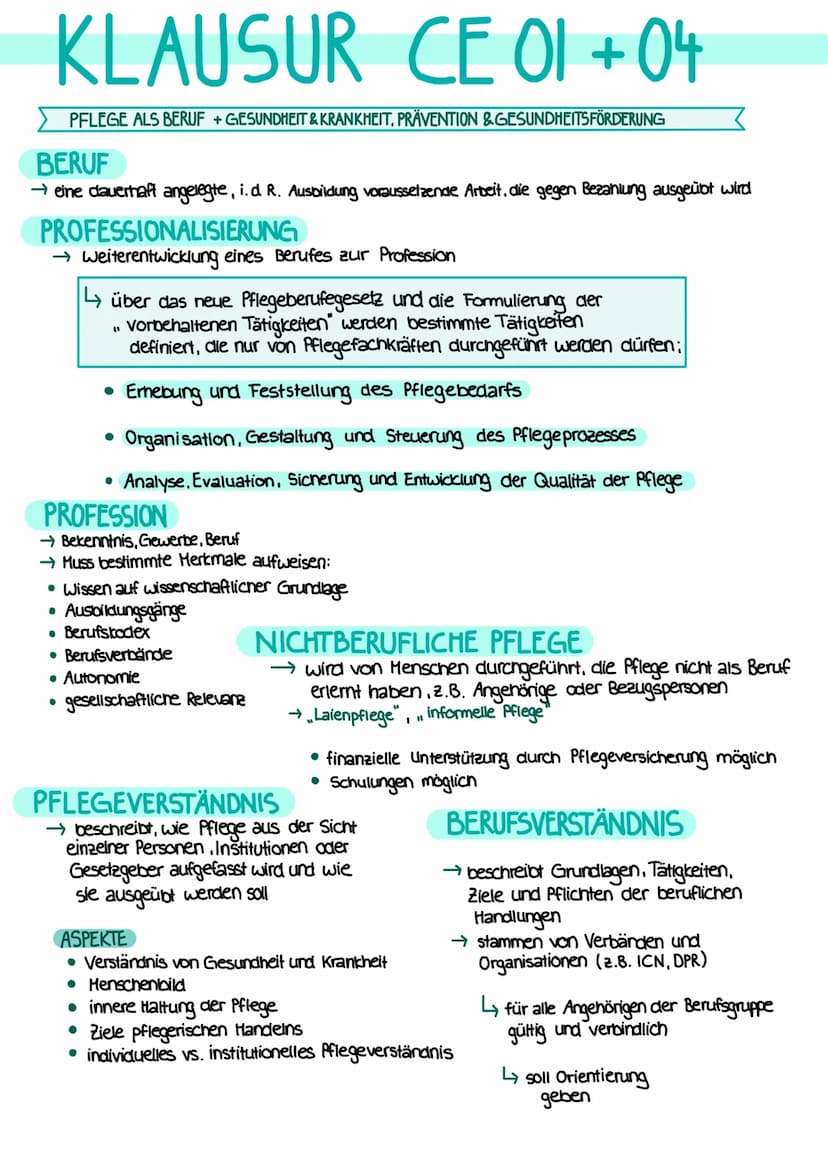 KLAUSUR CE 01 + 04
PFLEGE ALS BERUF + GESUNDHEIT & KRANKHEIT, PRÄVENTION & GESUNDHEITSFÖRDERUNG
BERUF
→ eine dauerhaft angelegte, i.d R. Ausbildung voraussetzende Arbeit, die gegen Bezahlung ausgeübt wird
PROFESSIONALISIERUNG
→ Weiterentwicklung eines Berufes zur Profession
↳ über das neue Pflegeberufegesetz und die Formulierung der
„ vorbehaltenen Tätigkeiten" werden bestimmte Tätigkeiten
definiert, die nur von Pflegefachkräften durchgeführt werden dürfen;
• Erhebung und Feststellung des Pflegebedarfs
• Organisation, Gestaltung und Steuerung des Pflegeprozesses
• Analyse, Evaluation, Sicherung und Entwicklung der Qualität der Pflege
PROFESSION
→ Bekenntnis, Gewerbe, Beruf
→ Muss bestimmte Merkmale aufweisen:
• Wissen auf wissenschaftlicher Grundlage
• Ausbildungsgänge
• Berufskodex
• Berufsverbände
• Autonomie
• gesellschaftliche Relevanz
NICHTBERUFLICHE PFLEGE
→ wird von Menschen durchgeführt, die Pflege nicht als Beruf
erlernt haben, z.B. Angehörige oder Bezugspersonen
→ „Laienpflege", „informelle Pflege"
• finanzielle Unterstützung durch Pflegeversicherung möglich
• Schulungen möglich
PFLEGEVERSTÄNDNIS
→ beschreibt, wie Pflege aus der Sicht
einzelner Personen, Institutionen oder
Gesetzgeber aufgefasst wird und wie
sie ausgeübt werden soll
ASPEKTE
• Verständnis von Gesundheit und Krankheit
• Menschenbild
• innere Haltung der Pflege
• Ziele pflegerischen Handelns
• individuelles vs. institutionelles Pflegeverständnis
BERUFSVERSTÄNDNIS
→ beschreibt Grundlagen, Tätigkeiten,
Ziele und Pflichten der beruflichen
Handlungen
→ stammen von Verbänden und
Organisationen (z.B. ICN, DPR)
↳ für alle Angehörigen der Berufsgruppe
gültig und verbindlich
↳ soll Orientierung
geben